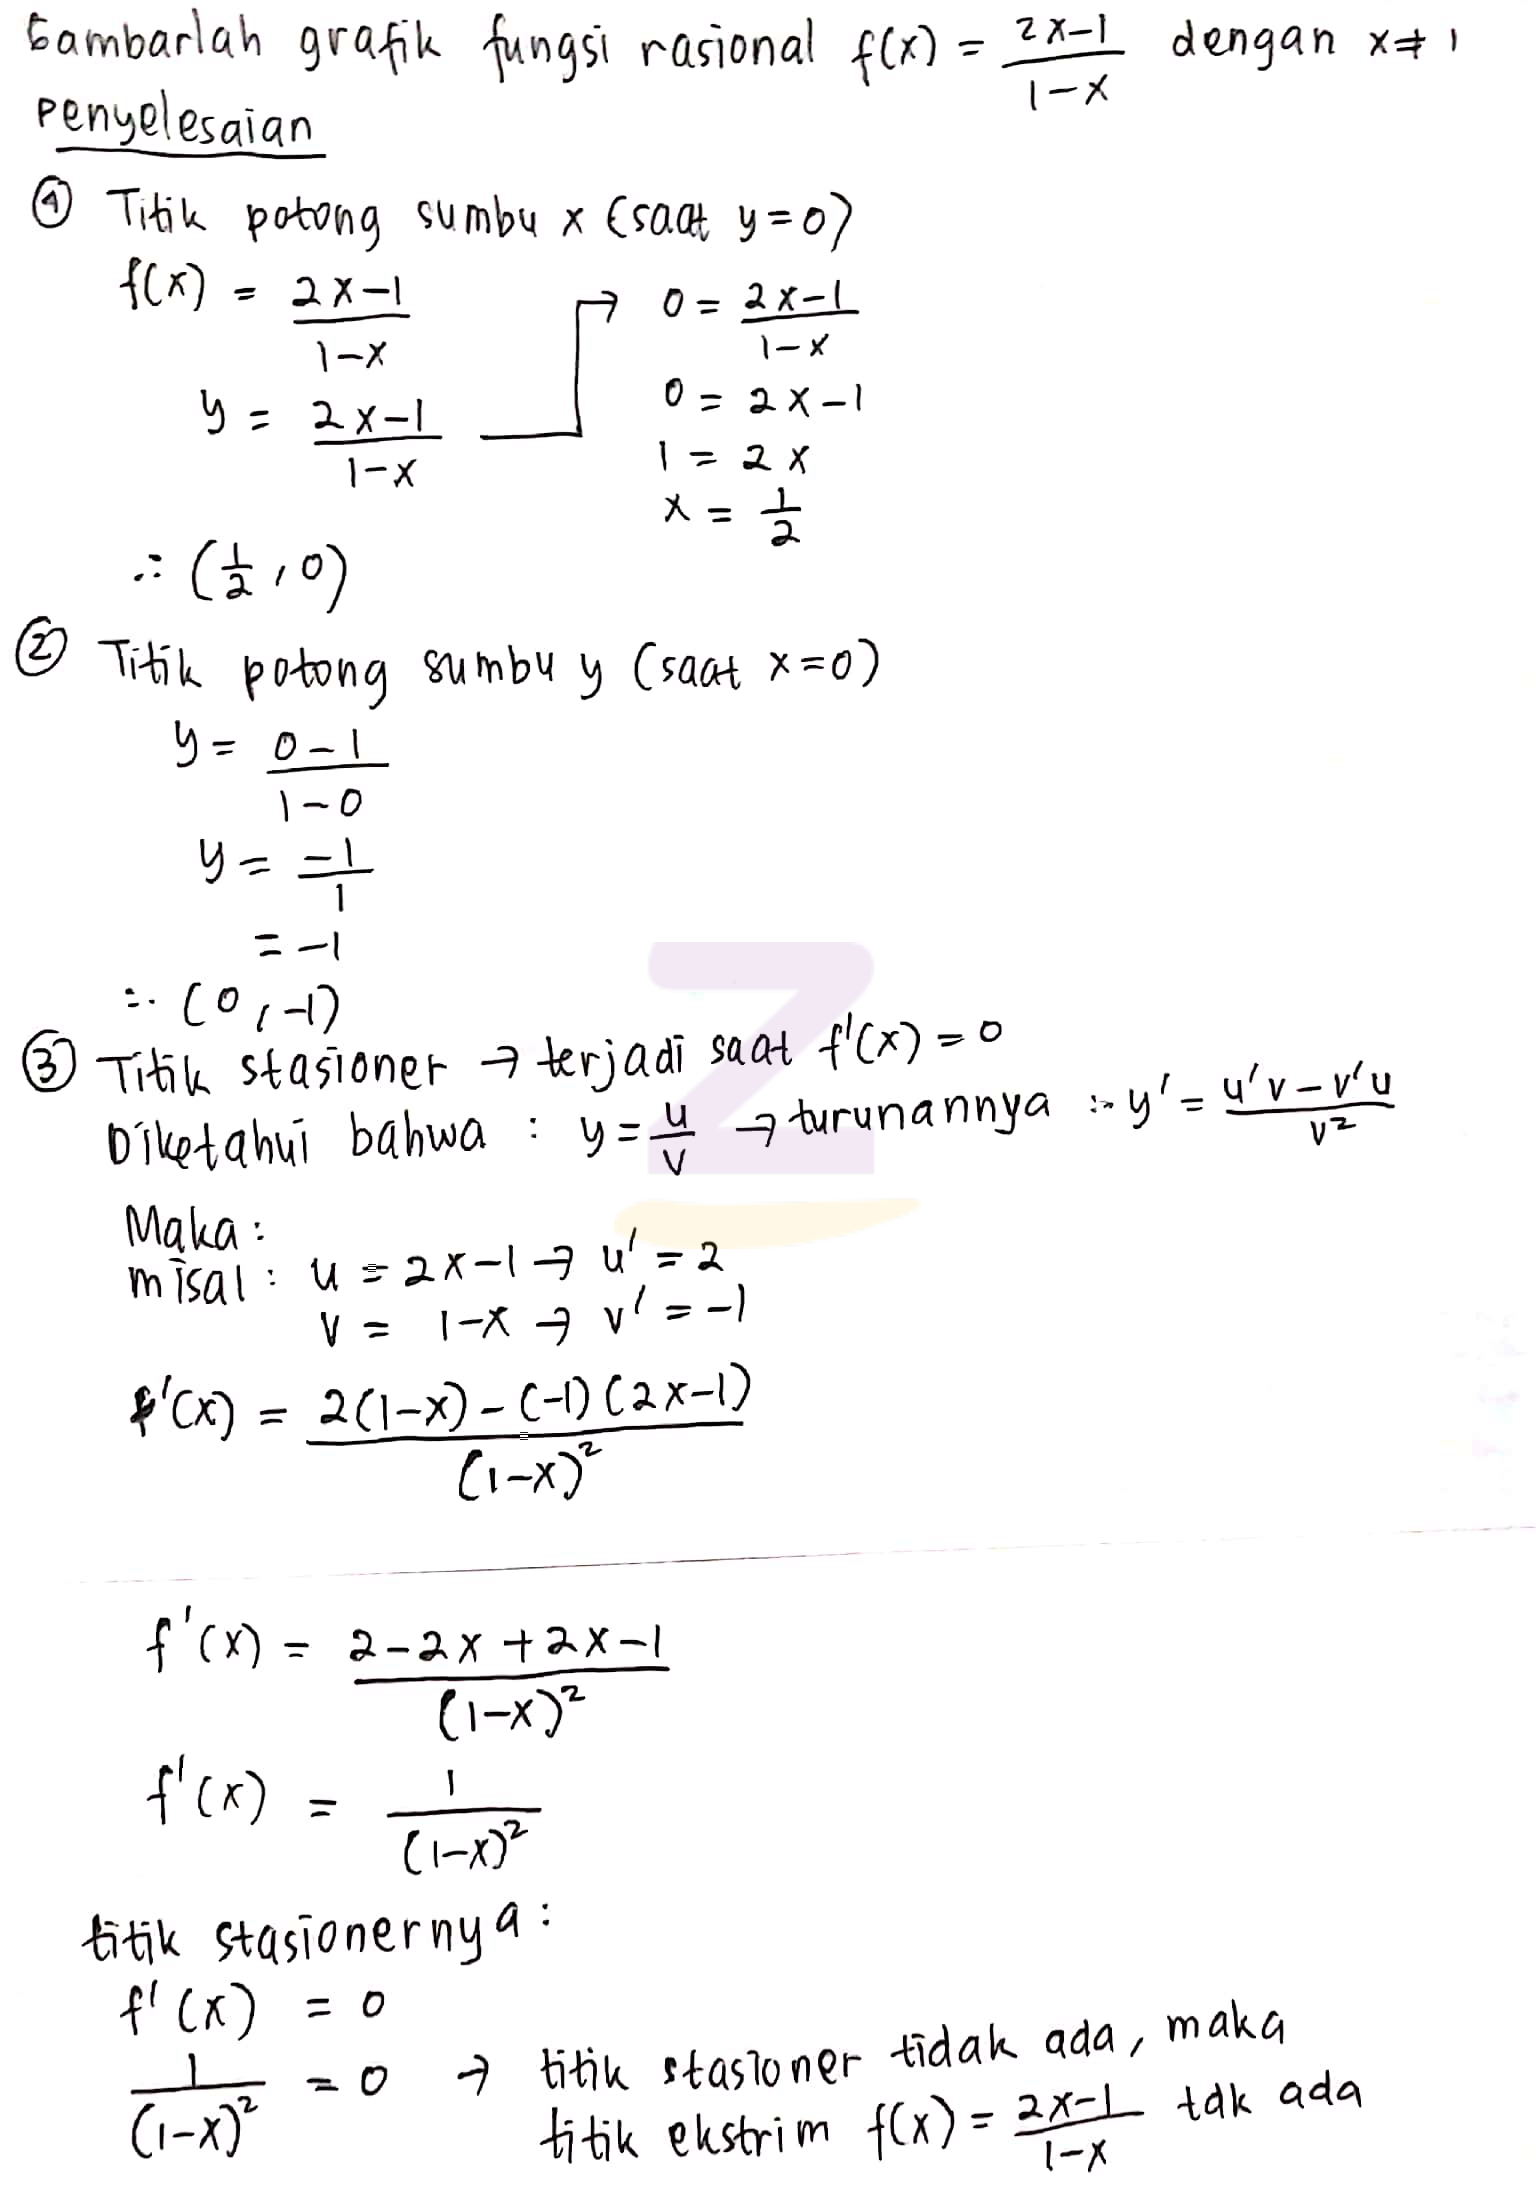 Gambarlah grafik fungsi rasional f(x) = (2x-1)/(1-x) dengan x≠1
Penyelesaian
① Titik potong sumbu x (saat y=0)
f(x) = (2x-1)/(1-x)
y = (2x-1)/(1-x) → 0 = (2x-1)/(1-x)
0 = 2x-1
1 = 2x
x = 1/2
∴ (1/2, 0)
② Titik potong sumbu y (saat x=0)
y = (0-1)/(1-0)
y = -1/1
= -1
∴ (0,-1)
③ Titik stasioner → terjadi saat f'(x) = 0
Diketahui bahwa : y = u/v → turunannya :- y' = (u'v - v'u)/v²
Maka :
misal : u = 2x-1 → u' = 2
v = 1-x → v' = -1
f'(x) = (2(1-x) - (-1)(2x-1))/(1-x)²
f'(x) = (2-2x+2x-1)/(1-x)²
f'(x) = 1/(1-x)²
titik stasionernya :
f'(x) = 0
1/(1-x)² = 0 → titik stasioner tidak ada, maka
titik ekstrim f(x) = (2x-1)/(1-x) tdk ada
Z